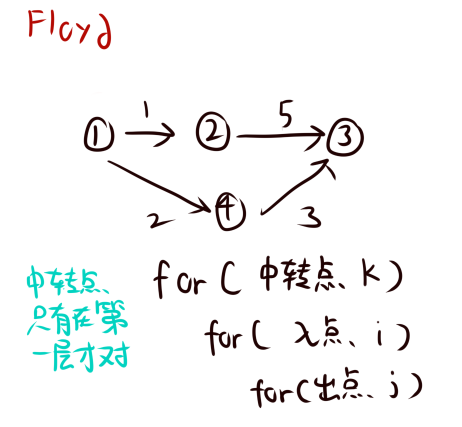 Floyd
1
5
①
②
③
④
2
3
中转点、
只有在第
一层才对
for( 中转点、k)
for( 入点、i)
for(出点、j)